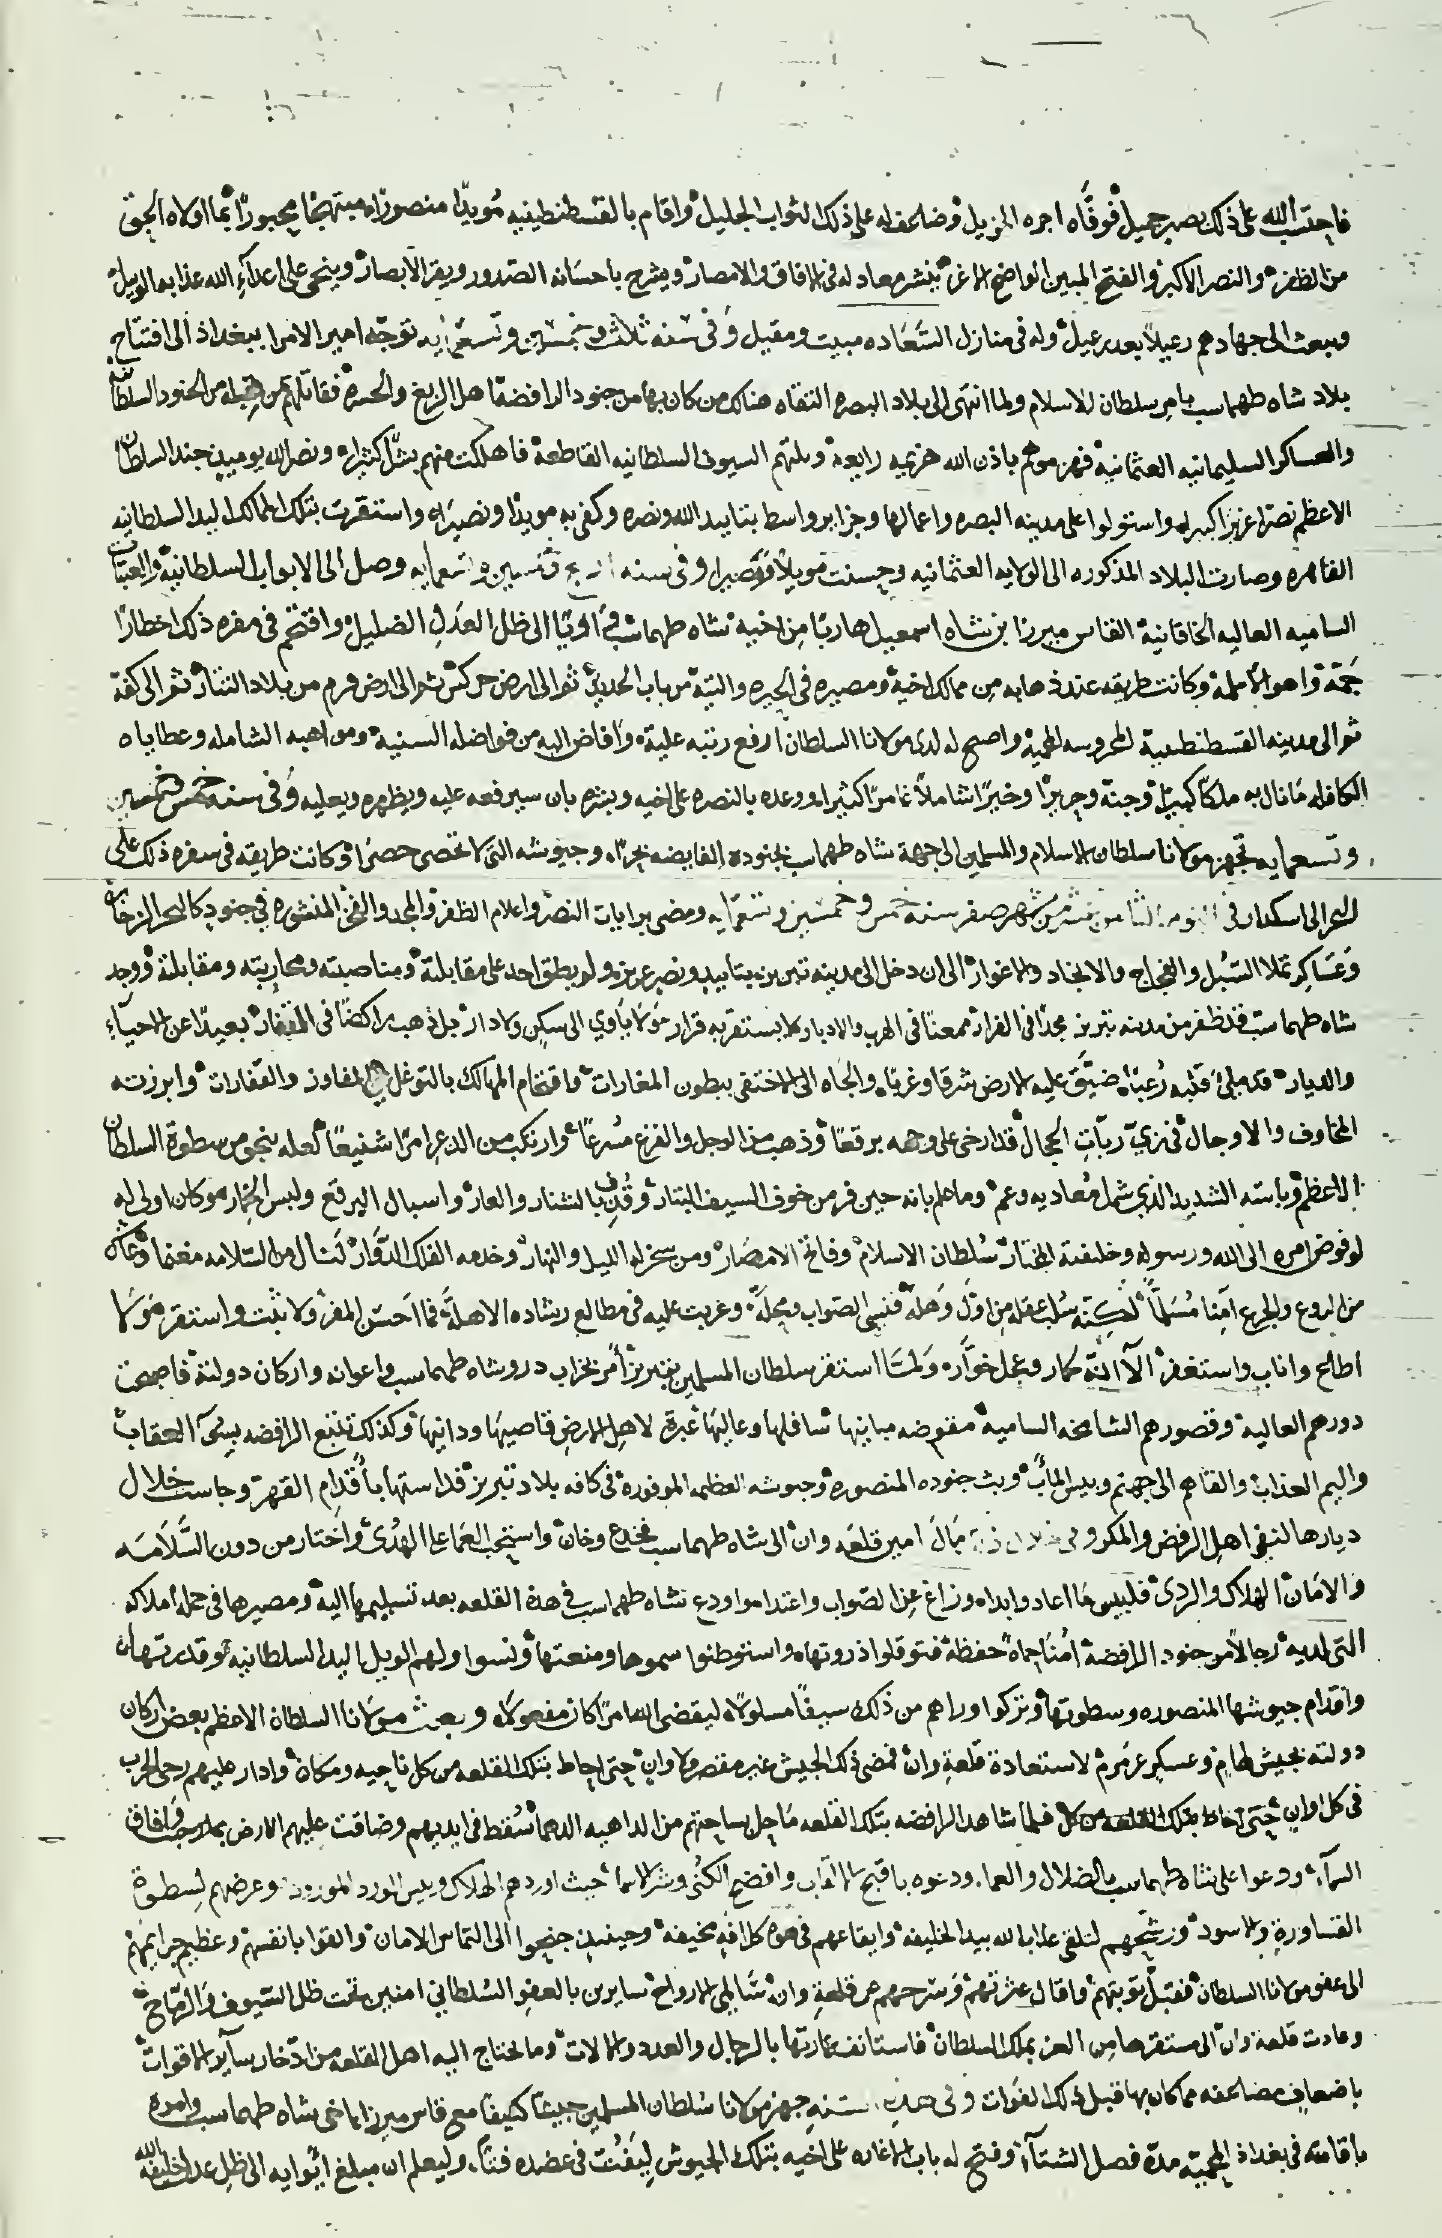 فاحتسب الله على ذلك بصبر جميل فوفّاه اجره الجزيل وضاعف له على ذلك الثواب الجليل واقام بالقسطنطينيه مويدا منصورا مبتهجا محبورا بما اولاه الحق
من الظفر والنصر الاكبر والفتح المبين الواضح الاغر ينشر معادله فى الافاق والامصار ويشرح باحسانه الصدور ويقر الابصار وينحى على اعدآء الله عذابه الوبيل
ويبعث الى جهادهم رعيلاً بعد رعيل وله فى منازل السَّعَاده مبيت ومقيل وَفى سنه ثلاث وخمسين وتسعمايه توجّه امير الامرا ببغداذ الى افتتاح
بلاد شاه طهماسب بامر سلطان الاسلام ولما انتهى الى بلاد البصره التقاه هناك من كان بها من جنود الرافضه اهل الزيغ والحسره فقاتلهم من قبله من الجنود السلطانيه
والعساكر السليمانيه العثمانيه فهزموهم باذن الله هزيمه رايعه وبلتهم السيوف السلطانيه القاطعه فاهلكت منهم بشرًا كثيرا ونصر الله يوميذ جند السلطان
الاعظم نصرا عزيزا كبيرا واستولوا على مدينه البصره واعمالها وجزاير واسط بتاييد الله ونصره وكفى به مويدا ونصيرا واستقرت بتلك الممالك اليد السلطانيه
القاهره وصارت البلاد المذكوره الى الولايه العثمانيه وحسنت مويلاً ومصيرا وفى سنه اربع وخمسين وتسعمايه وصل الى الابواب السلطانيه والعتبات
الساميه العاليه الخاقانية القاس ميرزا بن شاه اسمعيل هاربًا مِن اخيه شاه طهماسب فى اويًا الى ظل العَدل الضليل واقتحم فى مفره ذلك اخطارًا
جَمّة واهوالاً ملمة وكانت طريقه عند ذهابه مِن ممالك اخيه ومصيره فى الحيره والتيه من باب الحديد ثم الى ارض جركس ثم الى ارض قرم من بلاد التتار ثم الى كفه
ثم الى مدينه القسطنطينية المحروسه المحمية واصبح له لدى مولانا السلطان ارفع رتبه علية وافاض اليه من فواضله السنيه ومواهبه الشامله وعطاياه
الكافله مَا نال به ملكًا كبيرًا وجنة وحريرًا وخيرًا شاملاً غامرًا كثيرا ووعده بالنصره على اخيه وبشره بان سيرفعه عليه ويظهره ويعليه وَفى سنه خمس وخمسين
وتسعمايه تجهز مولانا سلطان الاسلام والمسلمين الى جهة شاه طهماسب بجنوده الفايضه بحرًا وجيوشه التى لا تحصى حصرًا وكانت طريقه فى سفره ذلك على
البحر الى اسكدار فى اليوم الثامن عشر من شهر صفر سنه خمس وخمسين وتسعمايه ومضى برايات النصر واعلام الظفر والمجد والفخر المنشوره فى جنود كالبحر الزخار
وَعَسَاكر تملا السّبُل والفجاج والانجاد والاغوار الى ان دخل الى مدينه تبريز بتاييد ونصر عزيز ولم يطق احد على مقابلته ومناصبته ومحاربته ومقابلة ووجد
شاه طهماسب قد ظفر من مدينه تبريز مجدًا فى الفرار ممعنًا فى الهرب والادبار لا يستقر به قرار وَلا يأوي الى سكن ولا دار بل ذهب راكضًا فى القفار بعيدًا عن الاحيآء
والديار قد ملئ قلبه رُعبًا ضيّق عليه الارض شرقا وغربًا والجاه الى الاختفى ببطون المغارات واقتحام المهالك بالتوغل فى المفاوز والقفارات وابرزته
المخاوف والاوجال فى زيّ ربّات الحجال قد ارخى على وجهه برقعًا وذهب من الوجل والفزع مسُرعًا وارتكب من الذعر امرًا شنيعًا لعله ينجو من سطوة السلطان
الاعظم وباسه الشديد الذي شمل مُعاديه وعم وما علم بانه حين فر من خوف السيف البتار وقُذف بالشنار والعار واسبال البرقع ولبس الخمار هو كان اولى له
لو فوض امره الى الله ورسوله وخليفته المختار سُلطان الاسلام وفاتح الامصَار ومن سخر له الليل والنهار وخدمه الفلك الدّوّار لنال من السّلامه مغنما وعاش
من الروع والجزع امنًا مُسَلمًا لكنه سُلب عقله مِن اوّل وَهلة فنسى الصّواب ومحله وعزبت عليه فى مطالع رشاده الاهلة فما احسَن المفر ولا ثبت واستقر وَلا
اطاع واناب واستغفر الآ انّهُ حمار وعجل خوّار وَلمّا استقر سلطان المسلمين بتبريز أمر بخراب دور شاه طهماسب واعوانه واركان دولته فاصبحت
دورهم العاليه وقصورهم الشامخه الساميه مقوضه مبانيها سافلها وعاليهَا عبرة لاهل الارض قاصيهَا ودانيها وكذلك تتبع الرافضه بسُوء العقاب
واليم العذاب والقاهم الى جهنم وبيس المآب وبث جنوده المنصوره وجيوشه العظيمه الموفوره فى كافه بلاد تبريز فداستها بأقدام القهر وجاست خلال
ديارها لنفى اهل الرفض والمكر وفى خلال ذلك مَالَ امير قلعَه وان الى شاه طهماسب فخدع وخان واستحب العمَا على الهدى واختار من دون السَّلاَمَه
والامَان الهلاك والردى فلبيس مَا اعاد وابداه وزاغ عن الصّواب واعتدا واودع شاه طهماسب فى هذه القلعه بعد تسليمها اليه ومصيرها فى جمله املاكه
التى لديه رجالاً من جنود الرافضة امُنا حماة حفظة فتوقلوا ذروتها واستوطنوا سموها ومنعتها ونسوا ولهم الويل اليد السلطانيه وقدرتها
واقدام جيوشها المنصوره وسطوتها وتركوا وراهم من ذلك سيفًا مسلولًا ليقضى الله امرًا كان مفعولًا وبعث مولانا السلطان الاعظم بعض اركان
دولته بجيش لهام وعسكر عرمرم لاستعادة قلعة وان فمضى ذلك الجيش غير مقصر ولا وانٍ حتى احاط بتلك القلعه من كل ناحيه ومكان وادار عليهم رحى الحرب
فى كل اوان حتى احاط بتلك القلعه من كل فلما شاهد الرافضه بتلك القلعه مَا حل بساحتهم من الداهيه الدهما سُقط فى ايديهم وضاقت عليهم الارض بما رحبت وافاق
السمآء ودعوا على شاه طهماسب بالضلال والعما ودعوه باقبح الالقاب وافضح الكُنى وشر الاسما حيث اوردهم الهلاك وبيس الورد المورود وعرضهم لسطوة
القساورة والاسود ورشّحهم لتلقى عذاب الله بيد الخليفه وايقاعهم فى هوة كل افةٍ مخيفه وحينيذ جنحوا الى التماس الامان والقوا بانفسهم وعظيم جرايمهم
الى عفو مولانا السلطان فقبل توبتهم واقال عثرتهم وسرحهم عن قلعة وان سَالمي الارواح سايرين بالعفو السُلطاني امنين تحت ظل السّيوف والرّماح
وعادت قلعة وان الى مستقرها مِن العز بملك السلطان فاستانف عمارتها بالرجال والعدد والالات وما تحتاج اليه اهل القلعه من ادّخار سآير الاقوات
باضعاف مضاعفه مما كان بها قبل ذلك الفوات وفى هذه السنهِ جهز مولانا سُلطان المسلمين جيشًا كثيفًا مع قاس ميرزا اخى شاه طهماسب وامره
باقامته فى بغداذ المحميّة مدّة فصل الشتآء وفتح له باب الاغاره على اخيه بتلك الجيوش ليَفُتّ فى عضده فتًا وليعلم ان مبلغ ايوايه الى ظل عدل خليفه الله